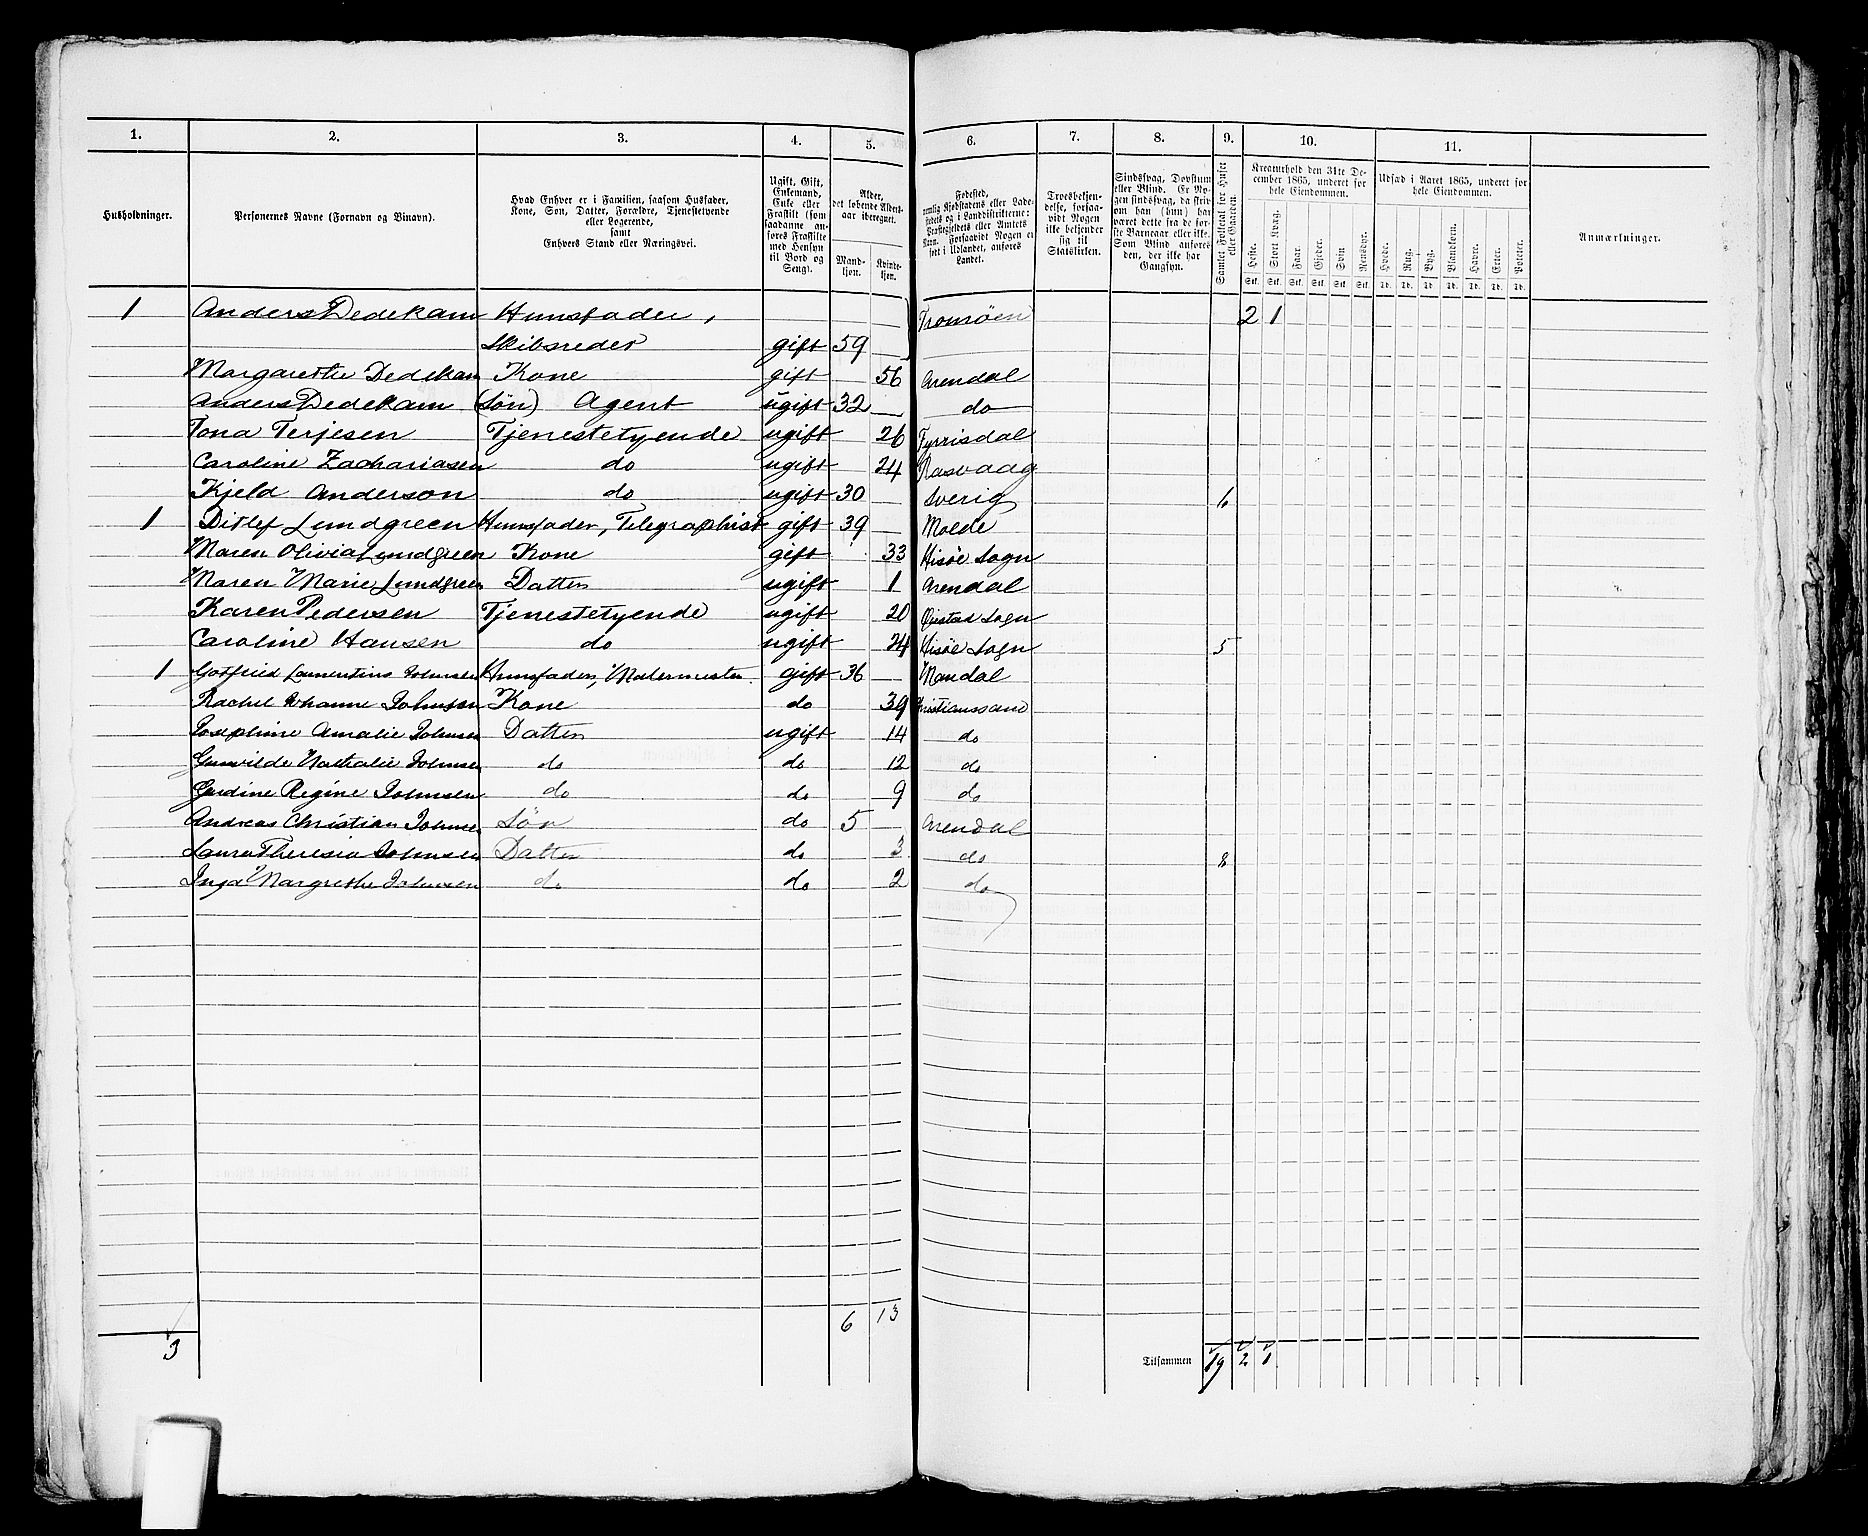 1. 2. 3. 4. 5. 6. 7. 8. 9. 10. 11.
Husholdninger. Personernes Navne (Fornavn og Tilnavn). Hvad Enhver er i Familien, saasom Husfader, Kone, Søn, Datter, Forældre, Tjenestetyende eller Logerende, samt Enhvers Stand eller Næringsvei. Ugift, Gift, Enkemand, Enke eller Fraskilt (som saadanne anføres Fraskilte med Hensyn til Bord og Seng). Alder, det løbende Aldersaar iberegnet. Mandkjøn. Kvindekjøn. Fødested, Troesbekjendelse, forsaavidt Nogen ikke bekjender sig til Statskirken. Sindssvag, Døvstum eller Blind. Samlet Folketal for Huset eller Gaarden. Kreaturhold den 31te December 1865, underet for hele Eiendommen. Udsæd i Aaret 1865, underet for hele Eiendommen. Anmærkninger.
Heste. Stort Kvæg. Faar. Gjeder. Svin Rensdyr. Hvede. Rug. Byg. Blandkorn. Havre. Erter. Poteter.
Stk. Stk. Stk. Stk. Stk. Stk. Td. Td. Td. Td. Td. Td. Td.
1 Anders Dedekam Huusfader, Tromsøen 2 1
Skibsreder gift 59
Margarethe Dedekam Kone gift 56 Arendal
Anders Dedekam (Søn) Agent ugift 32 do
Tona Terjesen Tjenestetyende ugift 26 Tyrrisdal
Caroline Zachariasen do ugift 24 Rasvaag
Kjeld Anderson do ugift 30 Sverig 6
1 Ditlef Lundgreen Huusfader, Telegraphist gift 39 Molde
Maren Olivia Lundgreen Kone gift 33 Hisøe Sogn
Maren Marie Lundgreen Datter ugift 1 Arendal
Karen Pedersen Tjenestetyende ugift 20 Øiestad Sogn
Caroline Hansen do ugift 24 Hisøe Sogn 5
1 Gotfried Laurentius Johnsen Huusfader, Malermester gift 36 Mandal
Rachel Johanne Johnsen Kone do 39 Christianssand
Josephine Amalie Johnsen Datter ugift 14 do
Gunvilde Nathalie Johnsen do do 12 do
Gurdine Regine Johnsen do do 9 do
Andreas Christian Johnsen Søn do 5 Arendal
Laura Theresia Johnsen Datter do 3 do 8
Inga Margrethe Johnsen do do 2 do
6 13
3 Tilsammen 19 2 1